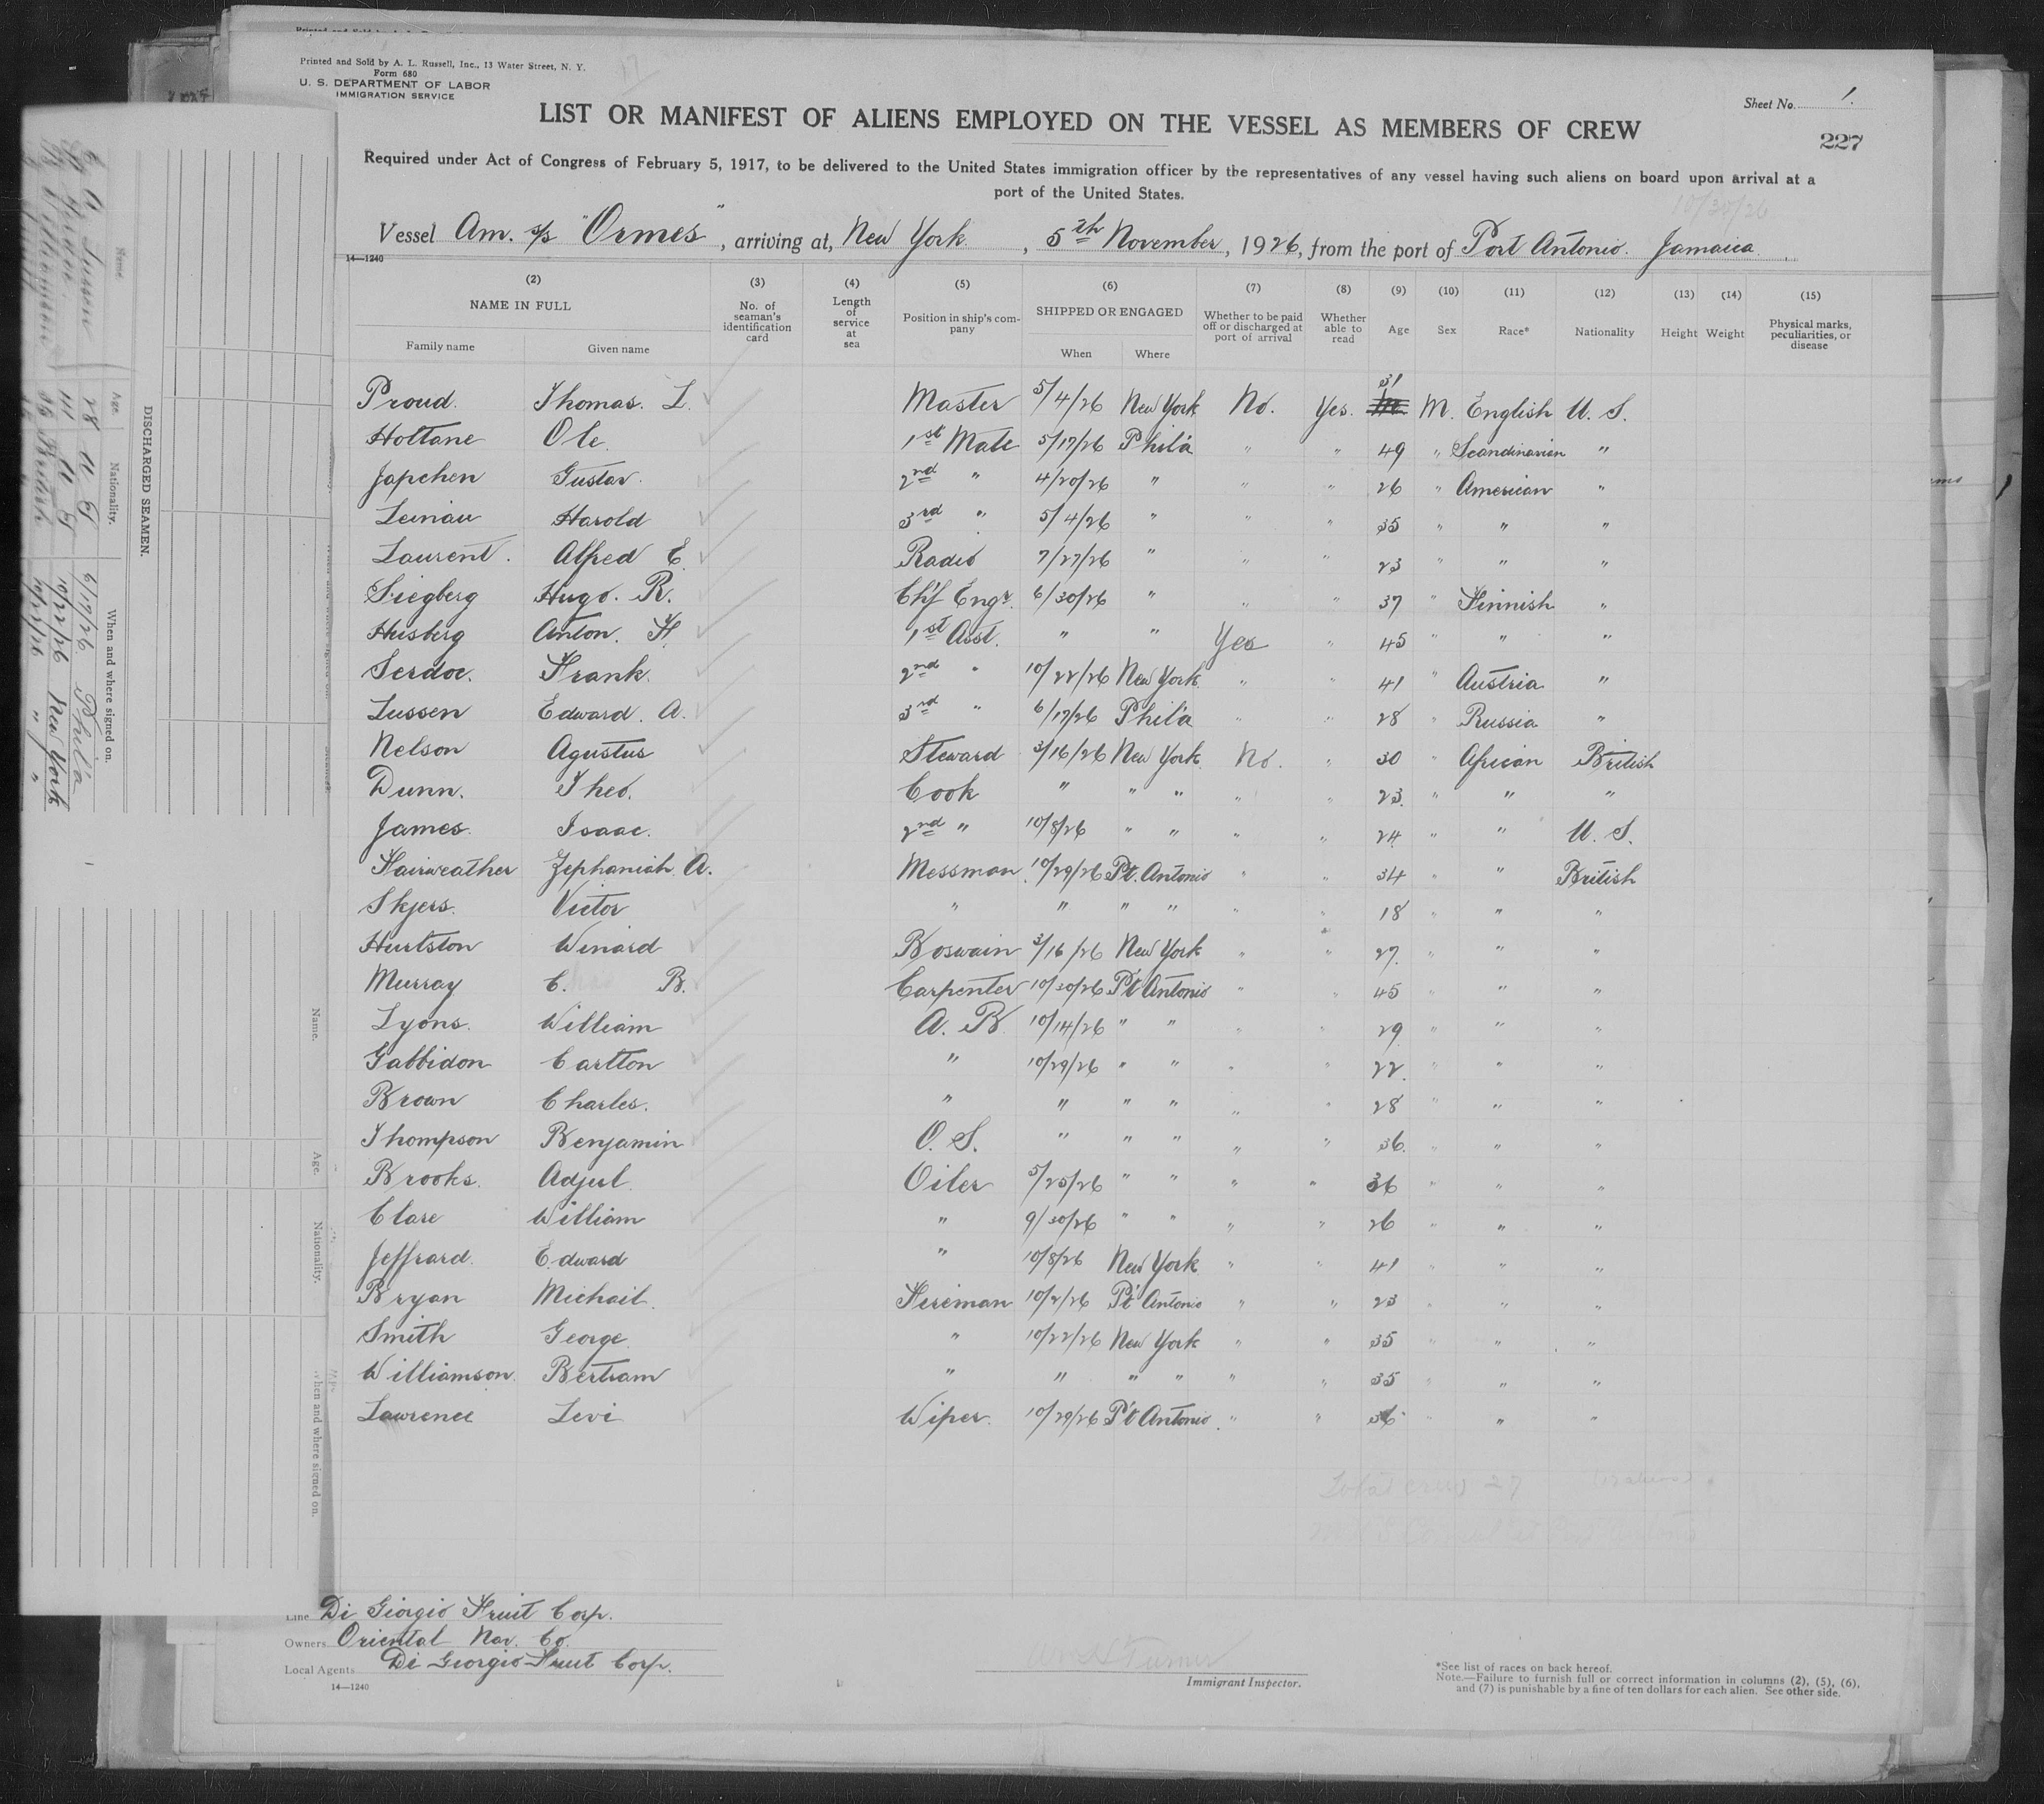 Printed and Sold by A. L. Russell, Inc., 13 Water Street, N. Y.
Form 680
U. S. DEPARTMENT OF LABOR
IMMIGRATION SERVICE
Sheet No. 1.
LIST OR MANIFEST OF ALIENS EMPLOYED ON THE VESSEL AS MEMBERS OF CREW
227
Required under Act of Congress of February 5, 1917, to be delivered to the United States immigration officer by the representatives of any vessel having such aliens on board upon arrival at a
port of the United States.
10/30/26
Vessel Am. s/s "Ormes", arriving at, New York, 5th November, 1926, from the port of Port Antonio. Jamaica
14—1240
(2) (3) (4) (5) (6) (7) (8) (9) (10) (11) (12) (13) (14) (15)
NAME IN FULL No. of seaman's identification card Length of service at sea Position in ship's company SHIPPED OR ENGAGED Whether to be paid off or discharged at port of arrival Whether able to read Age Sex Race* Nationality Height Weight Physical marks, peculiarities, or disease
Family name Given name When Where
Proud. Thomas. L. Master 5/4/26 New York No. Yes. 31 M. English U. S.
Holtane Ole. 1st Mate 5/17/26 Phil'a " " 49 " Scandinavian "
Japchen Gustav. 2nd " 4/20/26 " " " 26 " American "
Leinau Harold 3rd " 5/4/26 " " " 35 " " "
Laurent. Alfred E. Radio 7/27/26 " " " 23 " " "
Siegberg Hugo. R. Ch'f Engr. 6/30/26 " " " 37 " Finnish "
Husberg Anton. H. 1st Asst. " " Yes " 45 " " "
Serdoc. Frank. 2nd " 10/22/26 New York " " 41 " Austria "
Lussen Edward. A. 3rd " 6/17/26 Phil'a " " 28 " Russia "
Nelson Agustus Steward 3/16/26 New York No. " 30 " African British
Dunn. Theo. Cook " " " " " 23. " " "
James. Isaac. 2nd " 10/8/26 " " " " 24 " " U. S.
Fairweather Zephaniah A. Messman. 10/29/26 Pt. Antonio " " 34 " " British
Skyers. Victor " " " " " " 18 " " "
Hurlston Winard Boswain 3/16/26 New York " " 27. " " "
Murray C. B. Carpenter 10/30/26 P't Antonio " " 45 " " "
Lyons. William A. B. 10/14/26 " " " " 29 " " "
Gabbidon Carlton " 10/29/26 " " " " 22. " " "
Brown Charles. " " " " " " 28 " " "
Thompson Benjamin O. S. " " " " " 36. " " "
Brooks. Adjul Oiler 5/25/26 " " " " 36 " " "
Clare William " 9/30/26 " " " " 26 " " "
Jeffrard. Edward " 10/8/26 New York " " 41 " " "
Bryan Michail. Fireman 10/2/26 P't Antonio " " 23 " " "
Smith George " 10/22/26 New York " " 35 " " "
Williamson. Bertram " " " " " " 35 " " "
Lawrence Levi Wiper. 10/29/26 P't Antonio. " " 36 " " "
Total crew 27
Line Di Giorgio Fruit Corp.
Owners Oriental Nav. Co.
Local Agents Di Giorgio Fruit Corp.
14—1240
Immigrant Inspector.
*See list of races on back hereof.
Note.—Failure to furnish full or correct information in columns (2), (5), (6),
and (7) is punishable by a fine of ten dollars for each alien. See other side.
DISCHARGED SEAMEN.
Name. Age. Nationality. When and where signed on.
E. A. Lussen 28 U S 6/17/26 Phil'a
41 U S 10/22/26 New York
B. Williamson 35 British 10/22/26 " "
Name. Age. Nationality. When and where signed on.